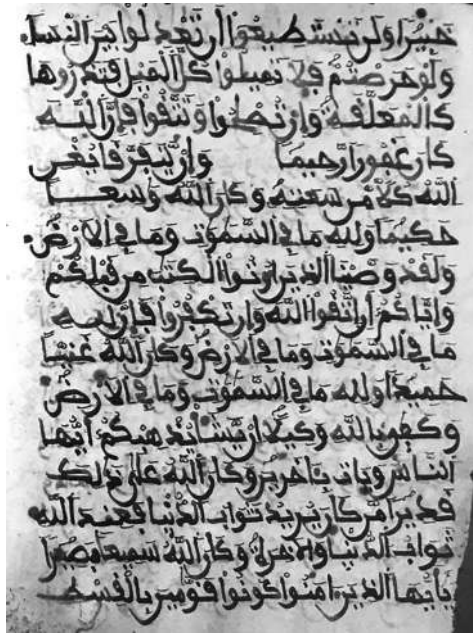 خبيرا ولن تستطيعوا أن تعدلوا بين النساء
ولو حرصتم فلا تميلوا كل الميل فتذروها
كالمعلقة وإن تصلحوا وتتقوا فإن الله
كان غفورا رحيما وإن يتفرقا يغن
الله كلا من سعته وكان الله واسعا
حكيما ولله ما في السموت وما في الارض
ولقد وصينا الذين اوتوا الكتب من قبلكم
وإياكم أن اتقوا الله وإن تكفروا فإن لله
ما في السموت وما في الارض وكان الله غنيا
حميدا ولله ما في السموت وما في الارض
وكفى بالله وكيلا ان يشأ يذهبكم أيها
الناس ويات بـاخرين وكان الله على ذلك
قديرا من كان يريد ثواب الدنيا فعند الله
ثواب الدنيا والاخرة وكان الله سميعا بصيرا
يأيها الذين ءامنوا كونوا قومين بالقسط